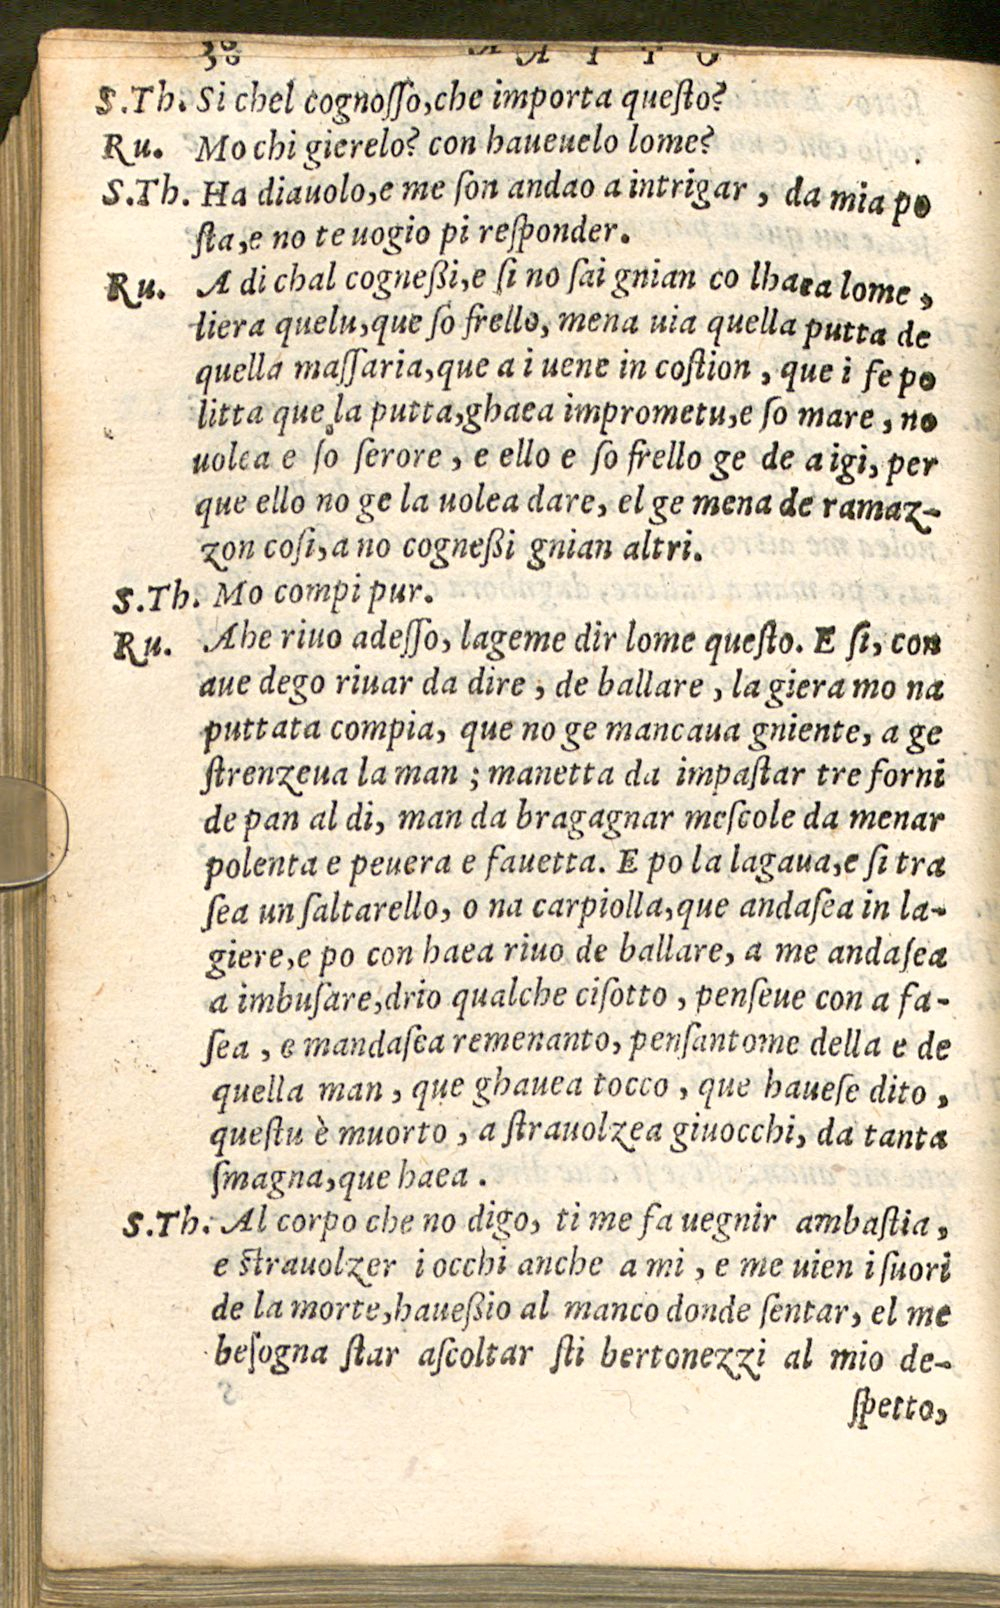 38 A T T O
S.Th. Si chel cognoſſo,che importa queſto?
Ru. Mo chi gierelo? con haueuelo lome?
S.Th. Ha diauolo,e me ſon andao a intrigar , da mia po
ſta,e no te uogio pi reſponder.
Ru. A di chal cogneßi,e ſi no ſai gnian co lhaea lome ,
liera quelu,que ſo frello, mena uia quella putta de
quella maſſaria,que a i uene in coſtion , que i ſe po
litta que la putta,ghaea imprometu,e ſo mare , no
uolea e ſo ſerore , e ello e ſo frello ge de a igi, per
que ello no ge la uolea dare, el ge mena de ramaz-
zon coſi,a no cogneßi gnian altri.
S.Th. Mo compi pur.
Ru. Ahe riuo adeſſo, lageme dir lome queſto. E ſi, con
aue dego riuar da dire , de ballare , la giera mo na
puttata compia, que no ge mancaua gniente, a ge
ſtrenzeua la man ; manetta da impaſtar tre forni
de pan al di, man da bragagnar meſcole da menar
polenta e peuera e fauetta. E po la lagaua,e ſi tra
ſea un ſaltarello, o na carpiolla,que andaſea in la-
giere,e po con haea riuo de ballare, a me andaſea
a imbuſare,drio qualche ciſotto , penſeue con a fa-
ſea , e mandaſea remenanto, penſantome della e de
quella man , que ghauea tocco , que haueſe dito ,
queſtu è muorto , a ſtrauolzea giuocchi, da tanta
ſmagna,que haea .
S.Th. Al corpo che no digo, ti me fa uegnir ambaſtia ,
e ſtrauolzer i occhi anche a mi , e me uien i ſuori
de la morte,haueßio al manco donde ſentar, el me
beſogna ſtar aſcoltar ſti bertonezzi al mio de-
ſpetto,